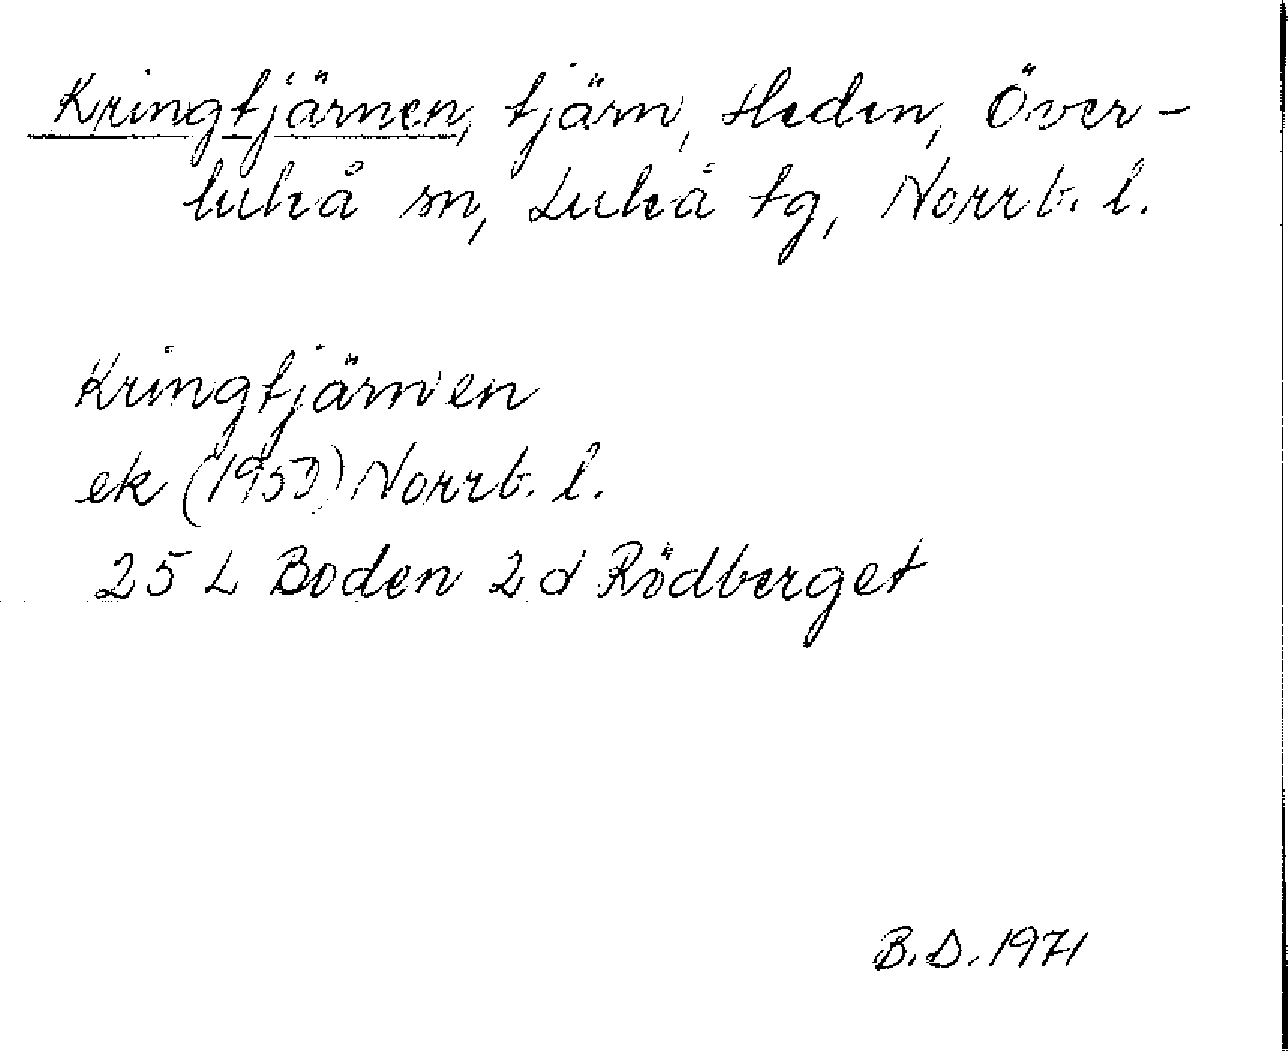 Kringtjärnen, tjärn, Heden, Över-
luleå sn, Luleå tg, Norrb. l.
Kringtjärnen
ek (1950) Norrb. l.
25 L Boden 2d Rödberget
B.D. 1971